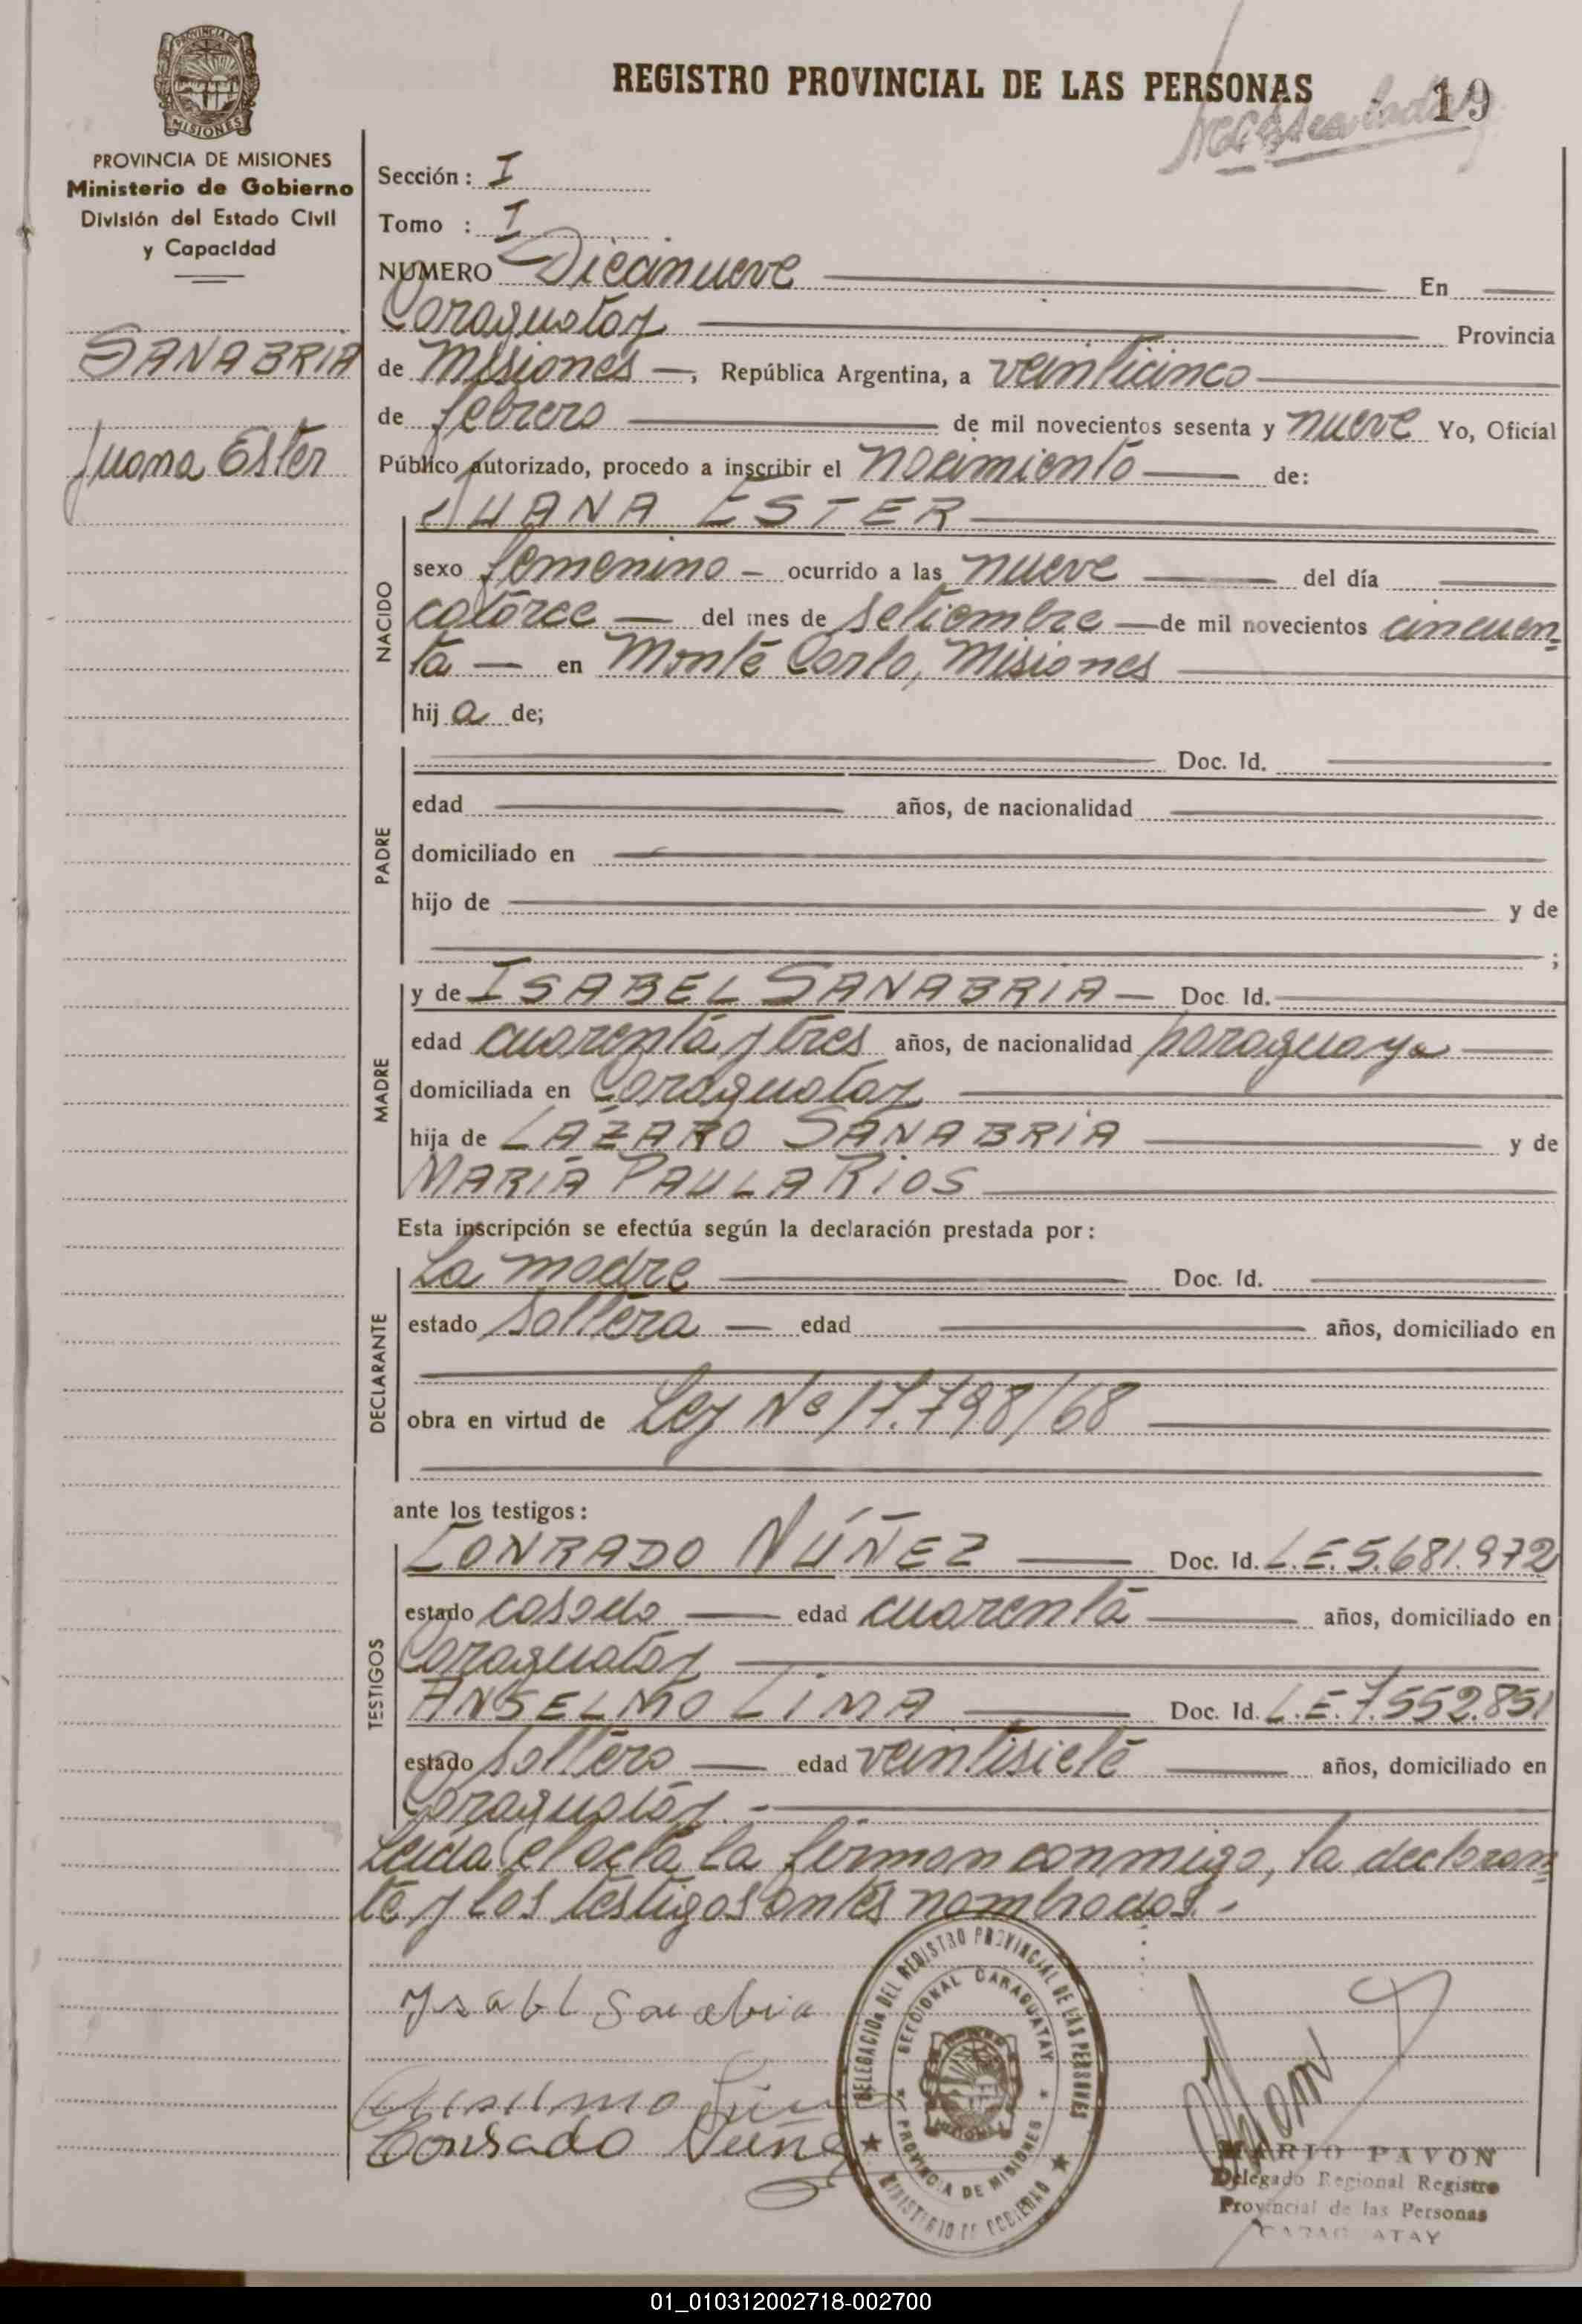 PROVINCIA DE MISIONES
REGISTRO PROVINCIAL DE LAS PERSONAS 19
PROVINCIA DE MISIONES
Ministerio de Gobierno
División del Estado Civil
y Capacidad
SANABRIA
Juana Ester
Sección: I
Tomo : I
NUMERO Diecinueve En
Caraguatay Provincia
de Misiones —, República Argentina, a veinticinco
de febrero de mil novecientos sesenta y nueve Yo, Oficial
Público autorizado, procedo a inscribir el nacimiento de:
NACIDO
JUANA ESTER
sexo femenino — ocurrido a las nueve del día
catorce — del mes de setiembre — de mil novecientos cincuen=
ta — en Monte Carlo, Misiones
hij a de;
PADRE
Doc. Id.
edad años, de nacionalidad
domiciliado en
hijo de y de
;
MADRE
y de ISABEL SANABRIA — Doc. Id.
edad cuarenta y tres años, de nacionalidad paraguaya
domiciliada en Caraguatay
hija de LÁZARO SANABRIA y de
MARÍA PAULA RIOS
Esta inscripción se efectúa según la declaración prestada por:
DECLARANTE
La madre Doc. Id.
estado soltera — edad años, domiciliado en
obra en virtud de Ley Nº 17.798/68
ante los testigos:
TESTIGOS
CONRADO NÚÑEZ Doc. Id. L.E. 5.681.972
estado casado edad cuarenta años, domiciliado en
Caraguatay
ANSELMO LIMA Doc. Id. L.E. 7.552.851
estado soltero — edad veintisiete años, domiciliado en
Caraguatay. -
Leída el acta la firman conmigo, la declaran=
te y los testigos antes nombrados. -
Ysabl Sanabria
Conrado Nuñez
DELEGACION DEL REGISTRO PROVINCIAL DE LAS PERSONAS
SECCIONAL CARAGUATAY
PROVINCIA DE MISIONES
MINISTERIO DE GOBIERNO
MARIO PAVON
Delegado Regional Registro
Provincial de las Personas
CARAGUATAY
01_010312002718-002700